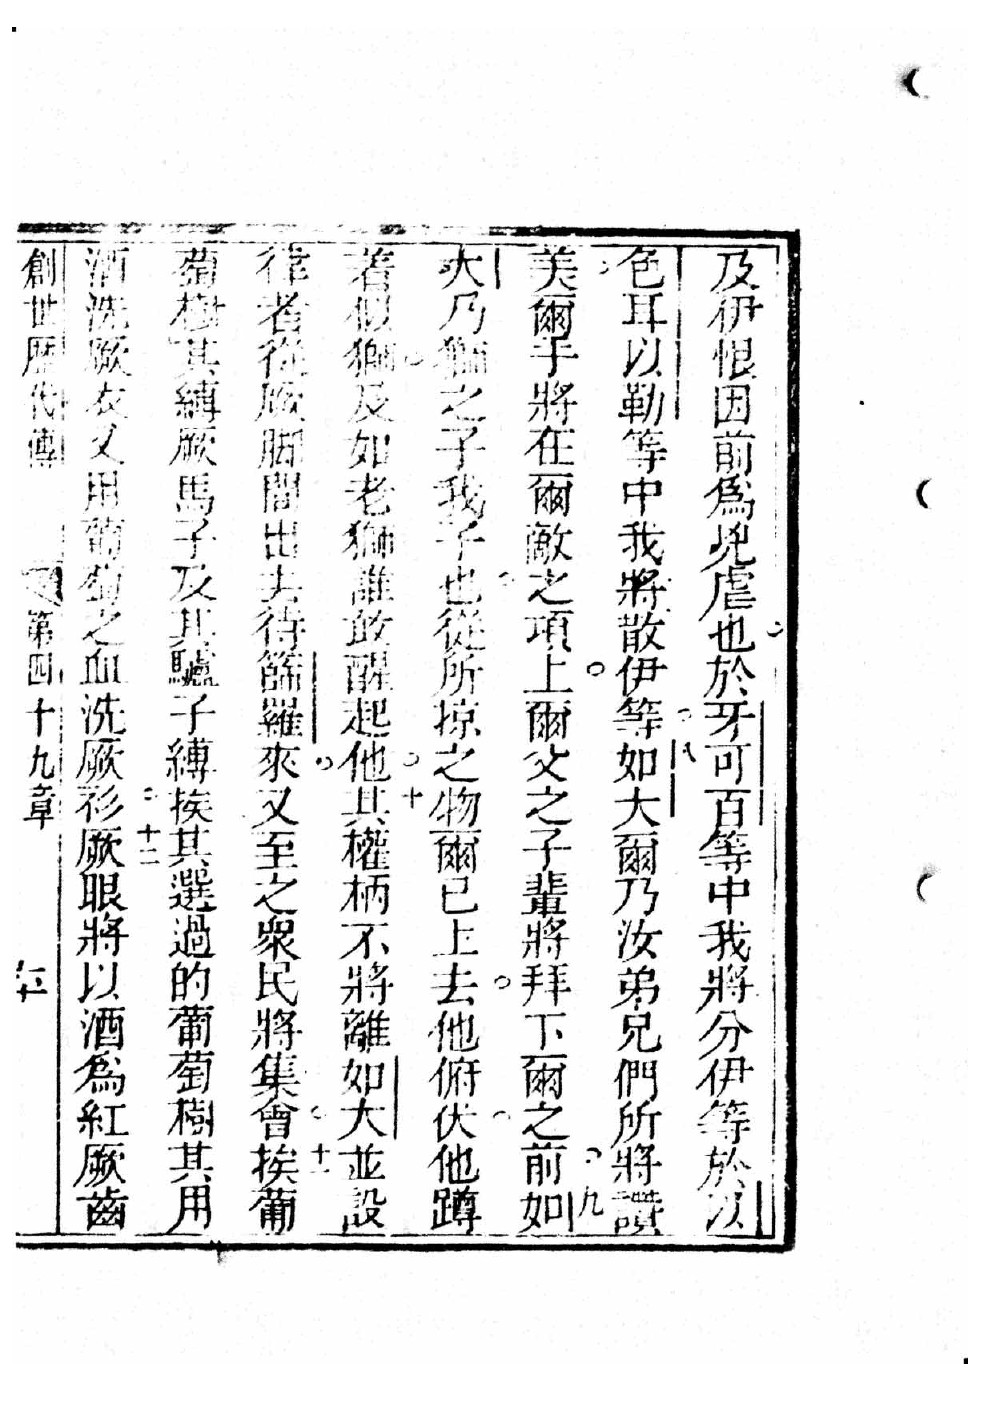 及伊恨因前爲兇虐也於牙可百等中我將分伊等於以
色耳以勒等中我將散伊等八如大爾乃汝弟兄們所將讚
美爾手將在爾敵之項上爾父之子輩將拜下爾之前九如
大乃獅之子我子也從所掠之物爾已上去他俯伏他蹲
着似獅及如老獅誰敢醒起他十其權柄不將離如大並設
律者從厥脚間出去待篩羅來又至之衆民將集會十一挨葡
萄樹其縛厥馬子及其驢子縛挨其選過的葡萄樹其用
酒洗厥衣又用葡萄之血洗厥衫十二厥眼將以酒爲紅厥齒
創世歷代傳 第四十九章